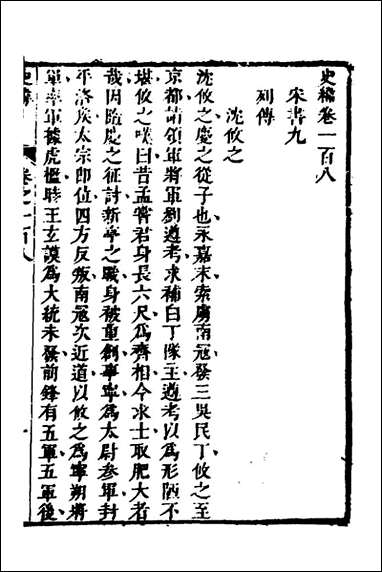 史緯卷一百八
宋書九
列傳
沈攸之
沈攸之慶之從子也永嘉末索虜南冦發三吳民丁攸之至
京都詣領軍將軍劉遵考求補白丁隊主遵考以爲形陋不
堪攸之嘆曰昔孟嘗君身長六尺爲齊相今求士取肥大者
哉因隨慶之征討新亭之戰身被重創事寧爲太尉參軍封
平洛侯太宗即位四方反叛南冦次近道以攸之爲寧朔將
軍率軍據虎檻時王玄謨爲大統未發前鋒有五軍五軍後